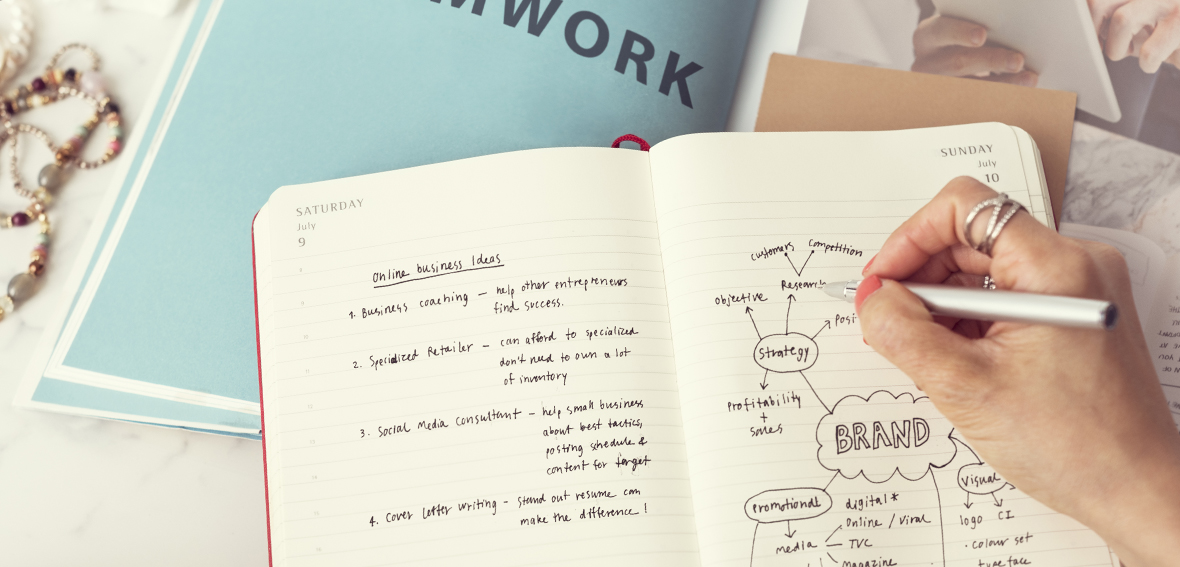 MWORK
SATURDAY
July
9
Online business Ideas
1. Business coaching – help other entrepreneurs
find success.
2. Specialized Retailer – can afford to specialized
don't need to own a lot
of inventory
3. Social Media Consultant – help small business
about best tactics,
posting schedule &
content for target
4. Cover Letter Writing – stand out resume can
make the difference!
SUNDAY
July
10
customers
Competition
Research
objective
Posi
Strategy
Profitability
+
sales
BRAND
promotional
digital*
Online / Viral
media
TVC
magazine
visual
logo CI
· colour set
typeface